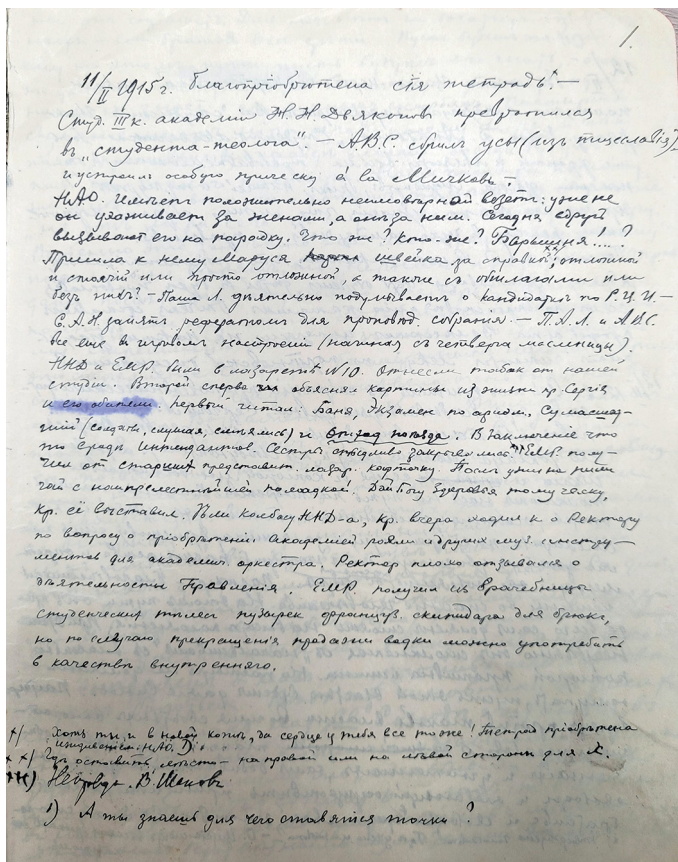 1.
11/II 1915 г. благопріобрѣтена сія тетрадь.х) —
Студ. III к. академіи Н. Н. Дьяконовъ превратился
въ „студента-теолога". — А.В.С. сбрилъ усы (изъ тщеславія)
и устроилъ особую прическу à la Мичковъ. —
Н.А.О. положительно везетъ: уже не
онъ ухаживаетъ за женами, а онѣ за нимъ. Сегодня вдругъ
вызываютъ его на площадку. Что же? Кто-же? Барышня!...?
Пришла к нему Маруся швейка за справкой; отложной
и стоячій или просто отложной, а также съ обшлагами или
безъ нихъ? — Паша Л. дѣятельно подумываетъ о кандидаткѣ по Р.Ц.И. —
С.А.Н. занятъ рефератомъ для проповѣд. собранія. — П.А.Л. и А.И.С.
все еще в игривом настроеніи (начиная съ четверга масленицы).
ННД и ЕМР. были в лазаретѣ № 10. Отнесли табак от нашей
студіи. Второй сперва объяснял картины из жизни пр. Сергія
и его обители. Первый читал: Баня, Экзамен по армѣ, Сумасшед-
шій (солдаты, слушая, смѣялись) и Отход поезда. В заключеніе что
то среди Интендантов. Сестры стыдливо закрывались. ЕМР. полу-
чил от старших представит. лазар. карточку. Послѣ ужина пили
чай с наипрелестнѣйшей помадкой. Дай Богу здоровья тому челу,
кр. её выставил. Ѣли колбасу ННД-а, кр. вчера ходил к о. Ректору
по вопросу о пріобрѣтеніи Академіей рояли и других муз. инстру-
ментов для академич. оркестра. Ректор плохо отзывался о
дѣятельности Правленія. ЕМР. получил из врачебницы
студенческих тѣлес пузырек француз. скипидара для брюк,
но по случаю прекращенія продажи водки можно употребить
в качествѣ внутренняго.
х) Хоть ты и в новой кожѣ, да сердце у тебя все то же! Тетрад пріобрѣтена
иждивеніем Н.А.О. Д.
х х) Гдѣ оставить мѣсто — на правой или на лѣвой сторонѣ для Х.
ххх) Неправда. В. Шаховъ
1) А ты знаешь для чего ставятся точки?